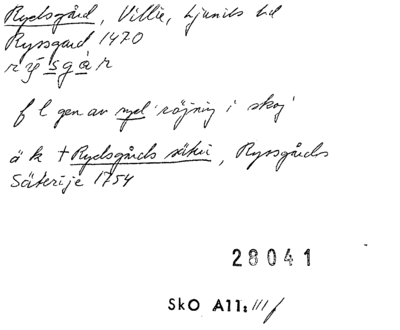 Rydsgård, Villie, Ljunits hd
Ryssgard 1470
rȳsgår
f l gen av ryd 'röjning i skog'
ä k † Rydsgårds säteri, Ryssgårds
Säterije 1754
28041
SkO A11: